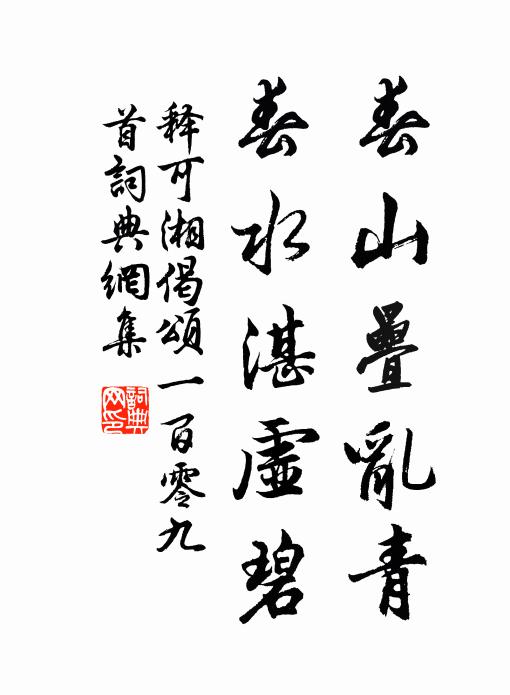 春山疊亂青
春水湛虛碧
释可湘偈頌一百零九
首詞典網集
詞典
网印